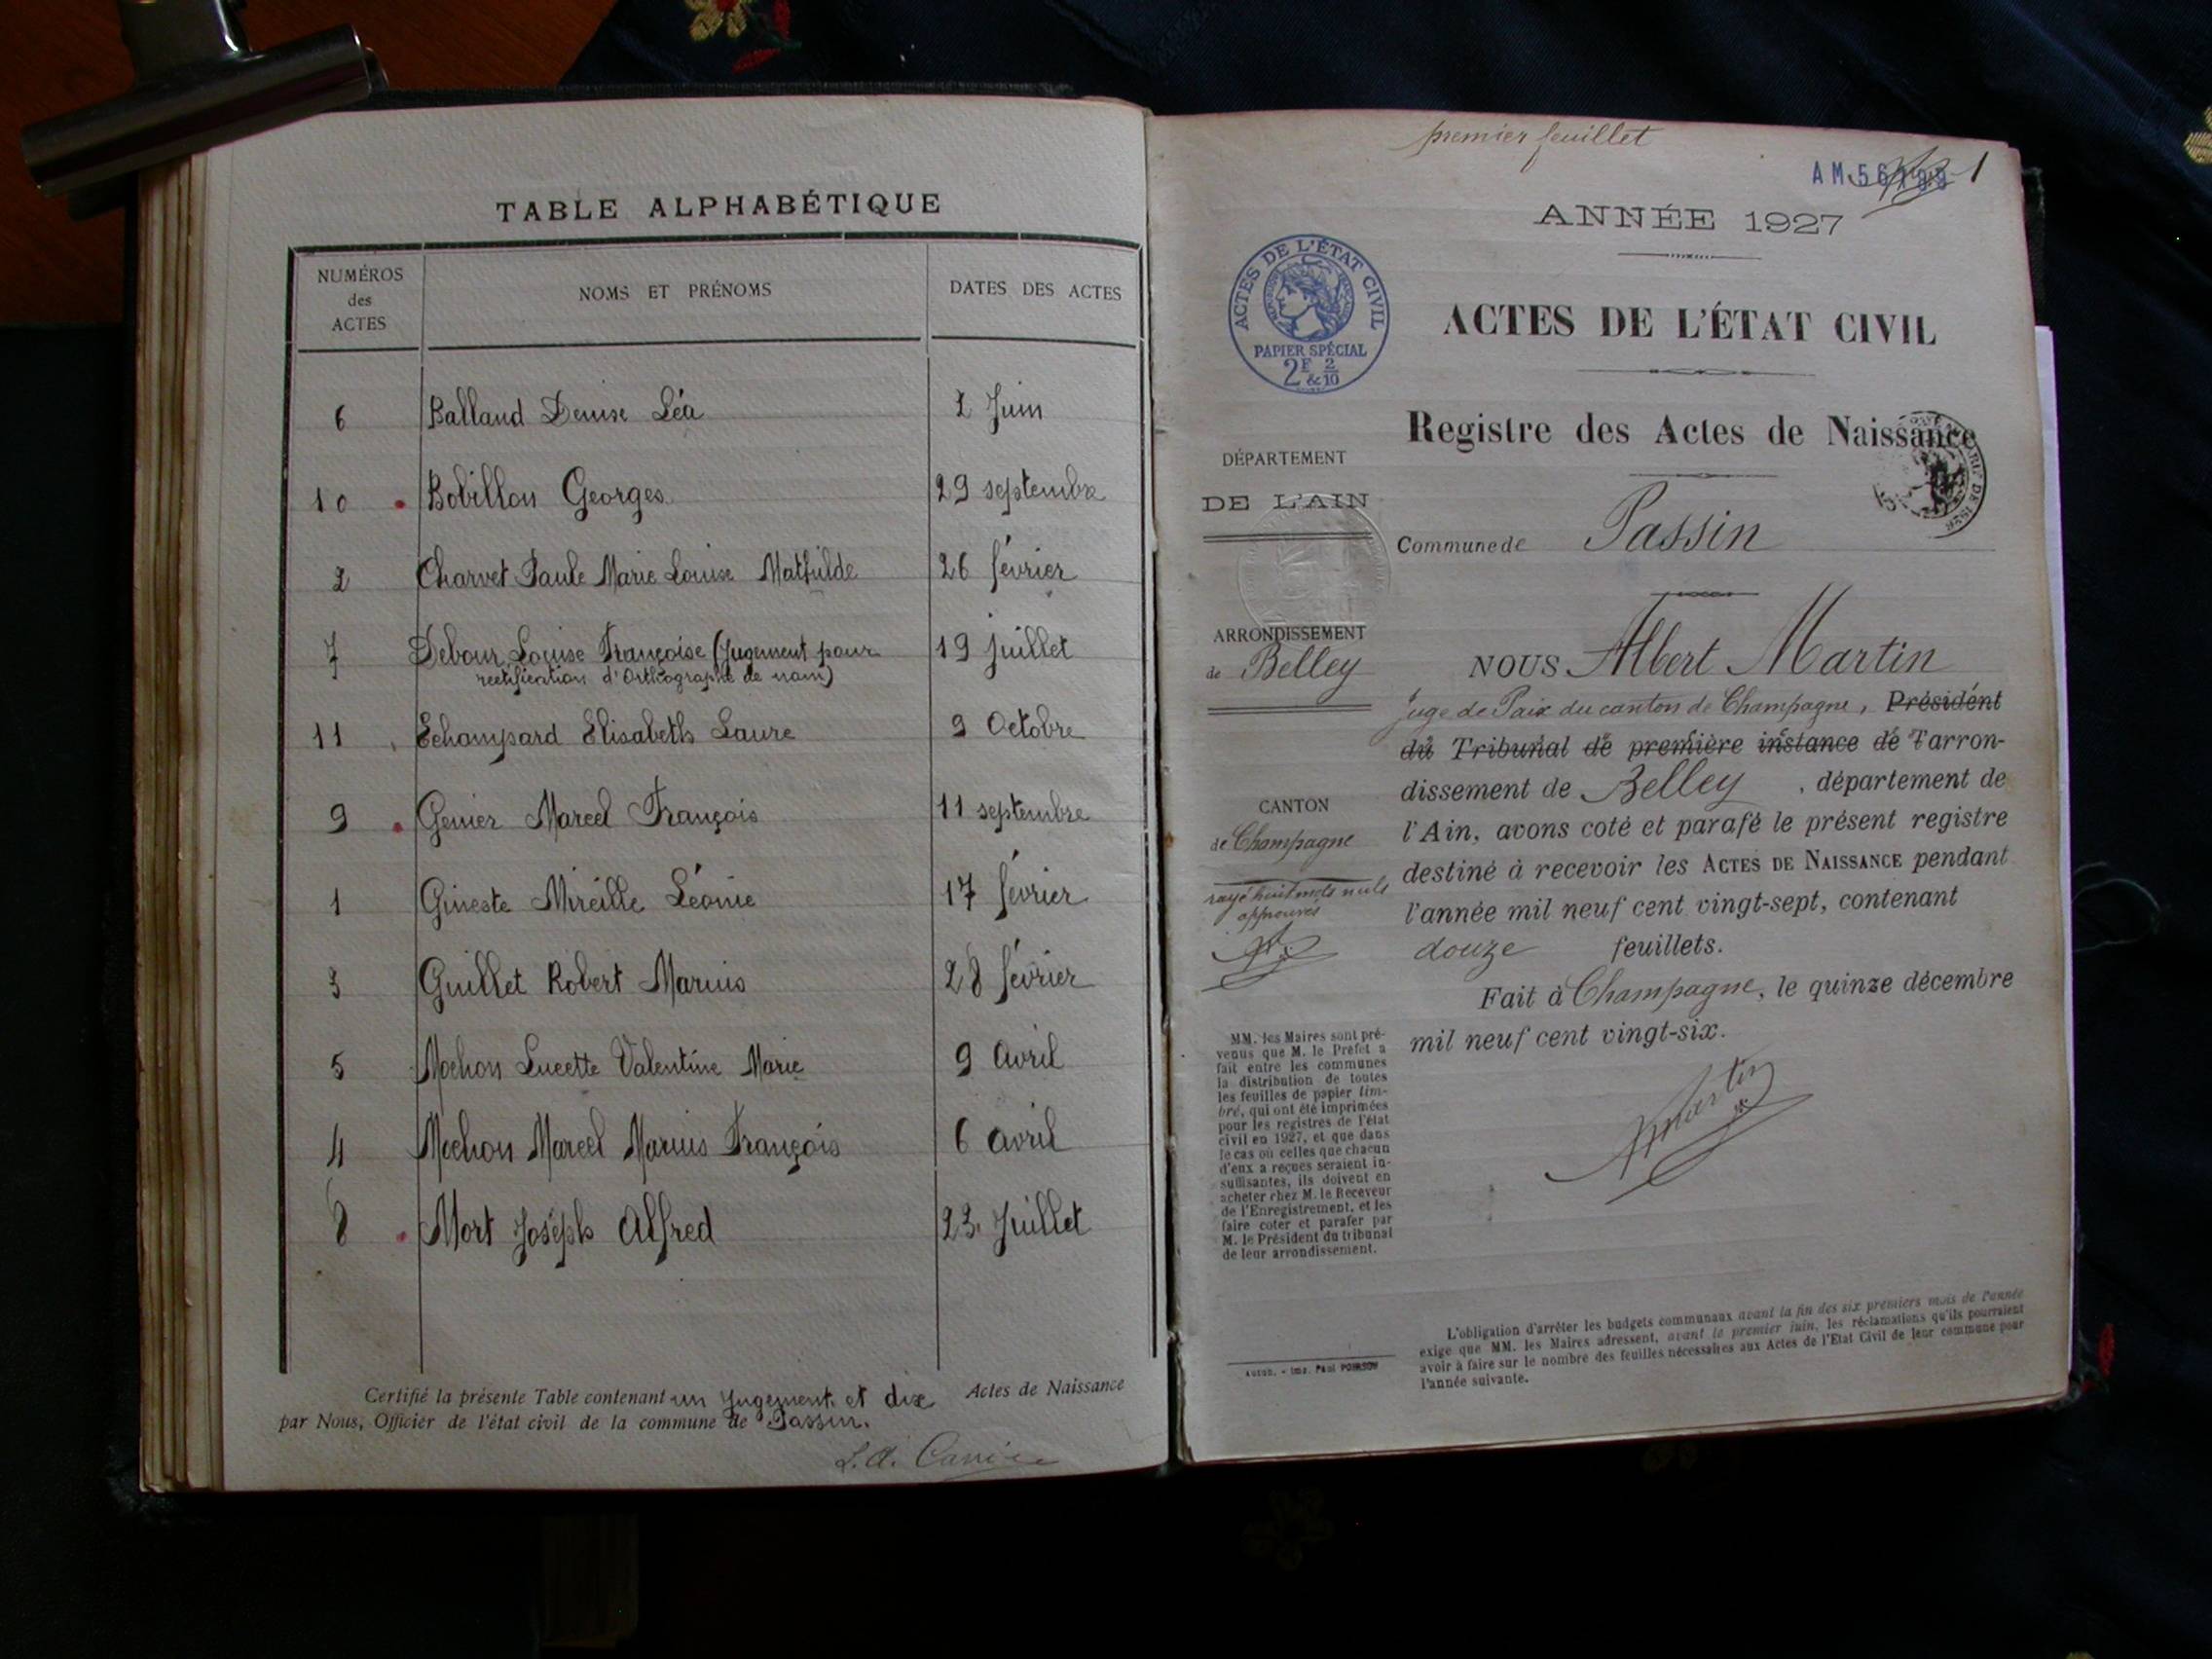 TABLE ALPHABÉTIQUE
NUMÉROS des ACTES NOMS ET PRÉNOMS DATES DES ACTES
6 Balland Denise Léa 2 Juin
10 Bobillon Georges 29 septembre
2 Charvet Paule Marie Louise Mathilde 26 février
7 Debour Louise Françoise (Jugement pour 19 juillet
rectification d'Orthographe de nom)
11 Echampard Elisabeth Laure 9 Octobre
9 Genier Marcel François 11 septembre
1 Gineste Mireille Léonie 17 février
3 Guillet Robert Marius 28 février
5 Mochon Lucette Valentine Marie 9 Avril
4 Mochon Marcel Marius François 6 Avril
8 Mort Joseph Alfred 23 Juillet
Certifié la présente Table contenant un Jugement et dix Actes de Naissance
par Nous, Officier de l'état civil de la commune de Passin.
premier feuillet
1
ANNÉE 1927
ACTES DE L'ÉTAT CIVIL
PAPIER SPÉCIAL
2F & 2/10
ACTES DE L'ÉTAT CIVIL
Registre des Actes de Naissance
DÉPARTEMENT
DE L'AIN
Commune de Passin
ARRONDISSEMENT
de Belley
NOUS Albert Martin
juge de Paix du canton de Champagne, Président
du Tribunal de première instance de l'arron-
dissement de Belley, département de
CANTON
de Champagne
l'Ain, avons coté et parafé le présent registre
destiné à recevoir les ACTES DE NAISSANCE pendant
rayé huit mots nuls
approuvés
l'année mil neuf cent vingt-sept, contenant
douze feuillets.
Fait à Champagne, le quinze décembre
mil neuf cent vingt-six.
Martin
MM. les Maires sont pré-
venus que M. le Préfet a
fait entre les communes
la distribution de toutes
les feuilles de papier tim-
bré, qui ont été imprimées
pour les registres de l'état
civil en 1927, et que dans
le cas où celles que chacun
d'eux a reçues seraient in-
suffisantes, ils doivent en
acheter chez M. le Receveur
de l'Enregistrement, et les
faire coter et parafer par
M. le Président du tribunal
de leur arrondissement.
L'obligation d'arrêter les budgets communaux avant la fin des six premiers mois de l'année
exige que MM. les Maires adressent, avant le premier juin, les réclamations qu'ils pourraient
avoir à faire sur le nombre des feuilles nécessaires aux Actes de l'Etat Civil de leur commune pour
l'année suivante.